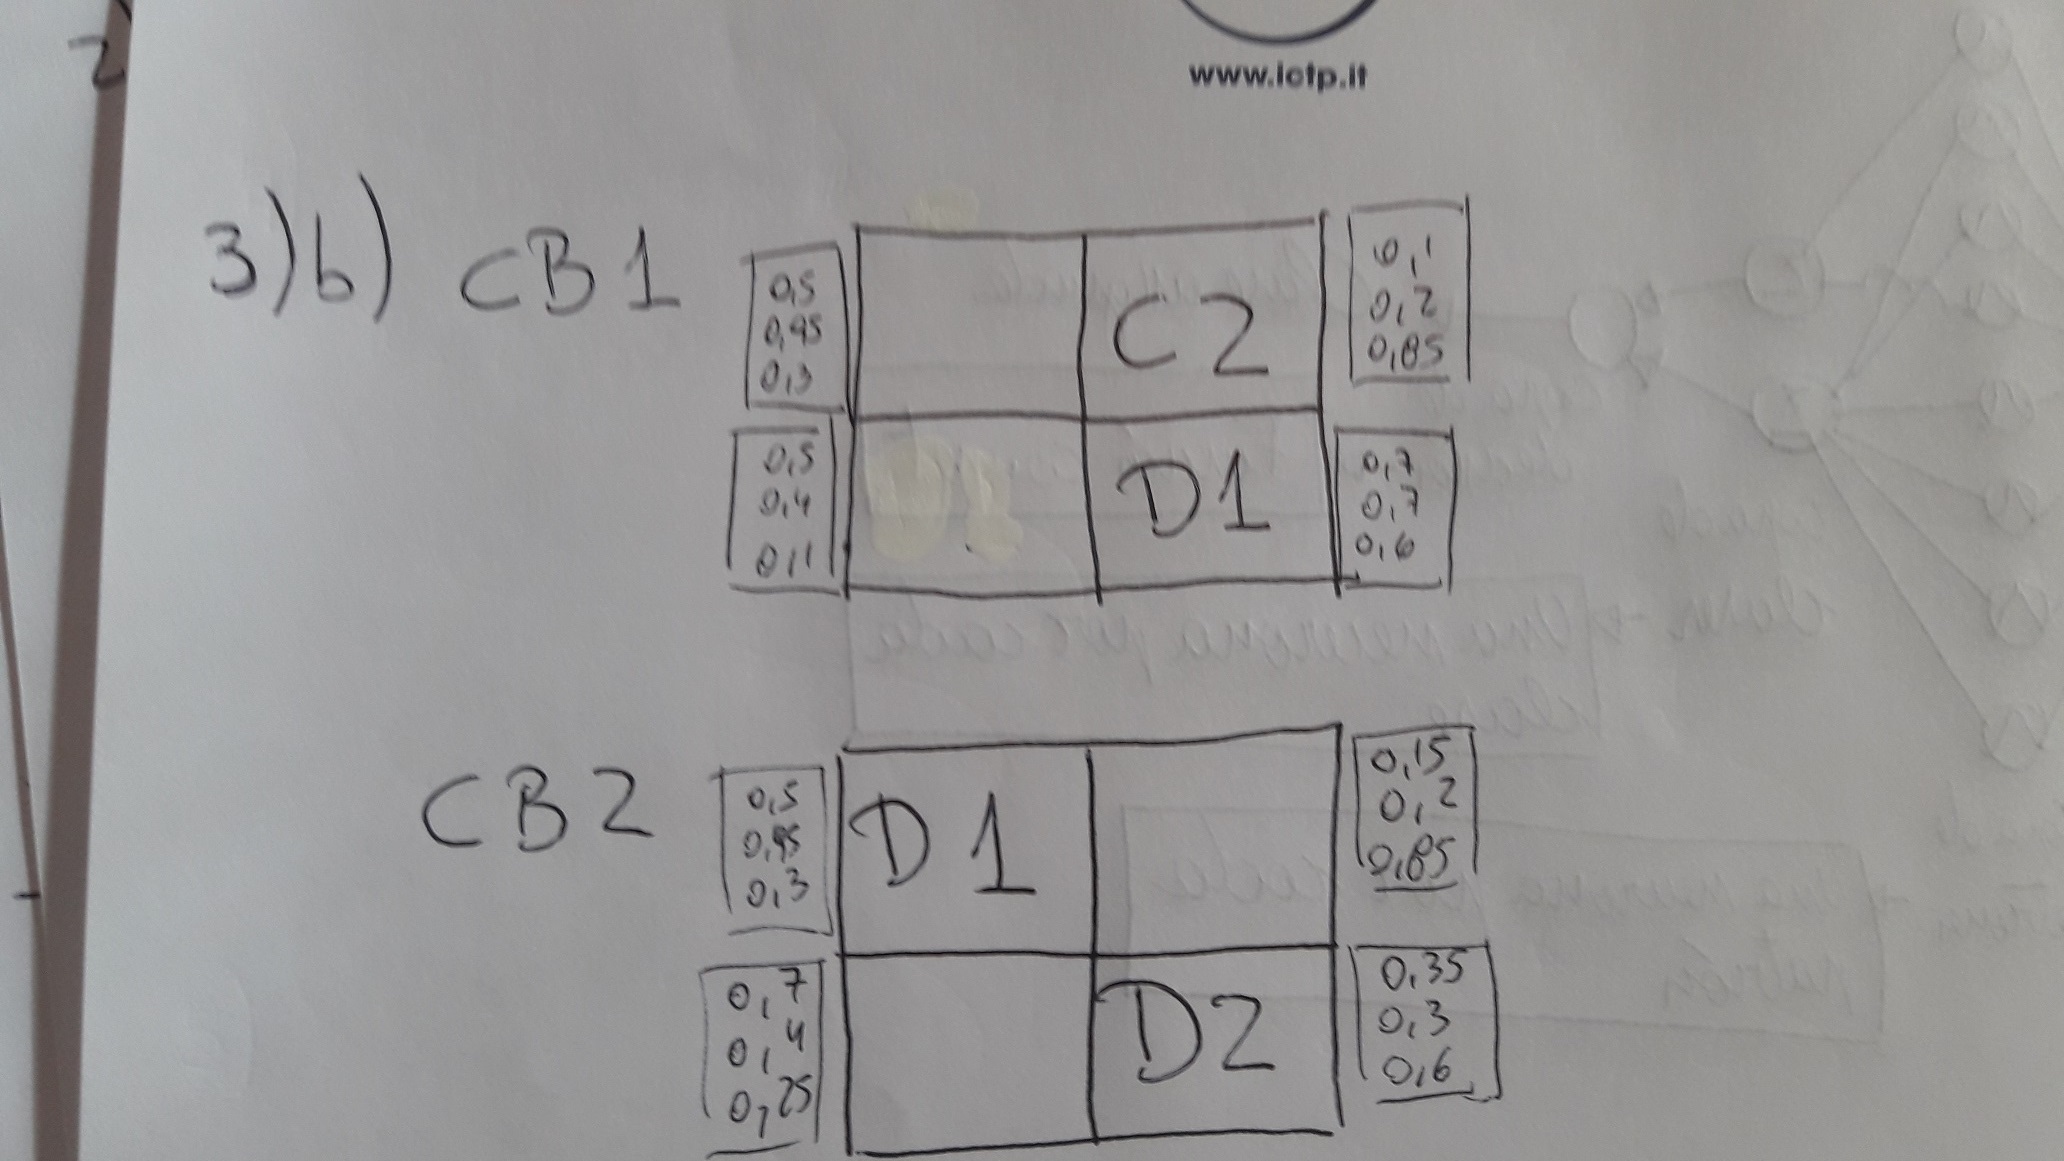 www.ictp.it
3)b) CB1
0,5
0,45
0,3
C2
0,1
0,2
0,85
0,5
0,4
0,1
D1
0,7
0,7
0,6
CB2
0,5
0,45
0,3
D1
0,15
0,2
0,85
0,7
0,4
0,25
D2
0,35
0,3
0,6